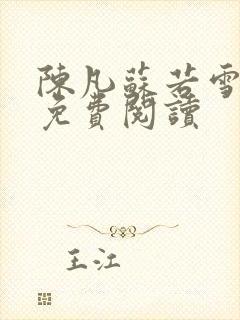 陳凡蘇若雪
免費閱讀
王江